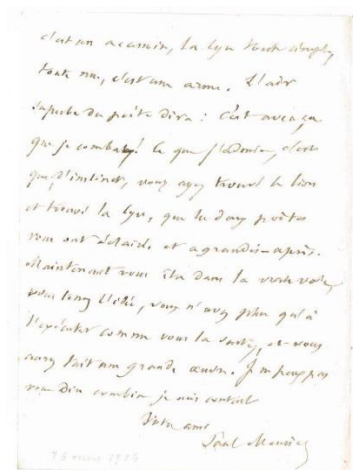 c'est un , la lyre toute simple,
toute nue, c'est une arme. L'
du poëte dira : C'est avec ça
que je combats ! Ce que j'admire, c'est
que, d'instinct, vous ayez trouvé le lion
et trouvé la lyre, que les deux poëtes
vous ont éclairé et agrandi – après.
Maintenant vous êtes dans la vraie voie,
vous tenez l'idée, vous n'avez plus qu'à
l'exécuter comme vous la sentez, et vous
aurez fait une grande œuvre. Je ne peux pas
vous dire combien je suis content
Votre ami
Paul Meurice